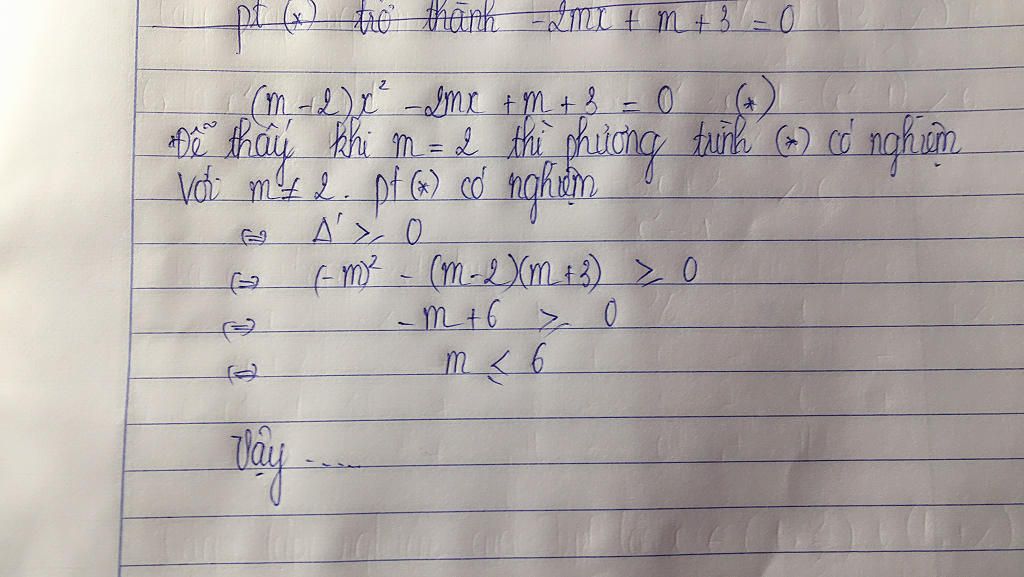 pt (*) trở thành -2mx + m + 3 = 0
(m - 2)x² - 2mx + m + 3 = 0 (*)
Dễ thấy khi m = 2 thì phương trình (*) có nghiệm
Với m ≠ 2. pt (*) có nghiệm
⇔ Δ' ≥ 0
⇔ (-m)² - (m-2)(m+3) ≥ 0
⇔ -m + 6 ≥ 0
⇔ m ≤ 6
Vậy .....